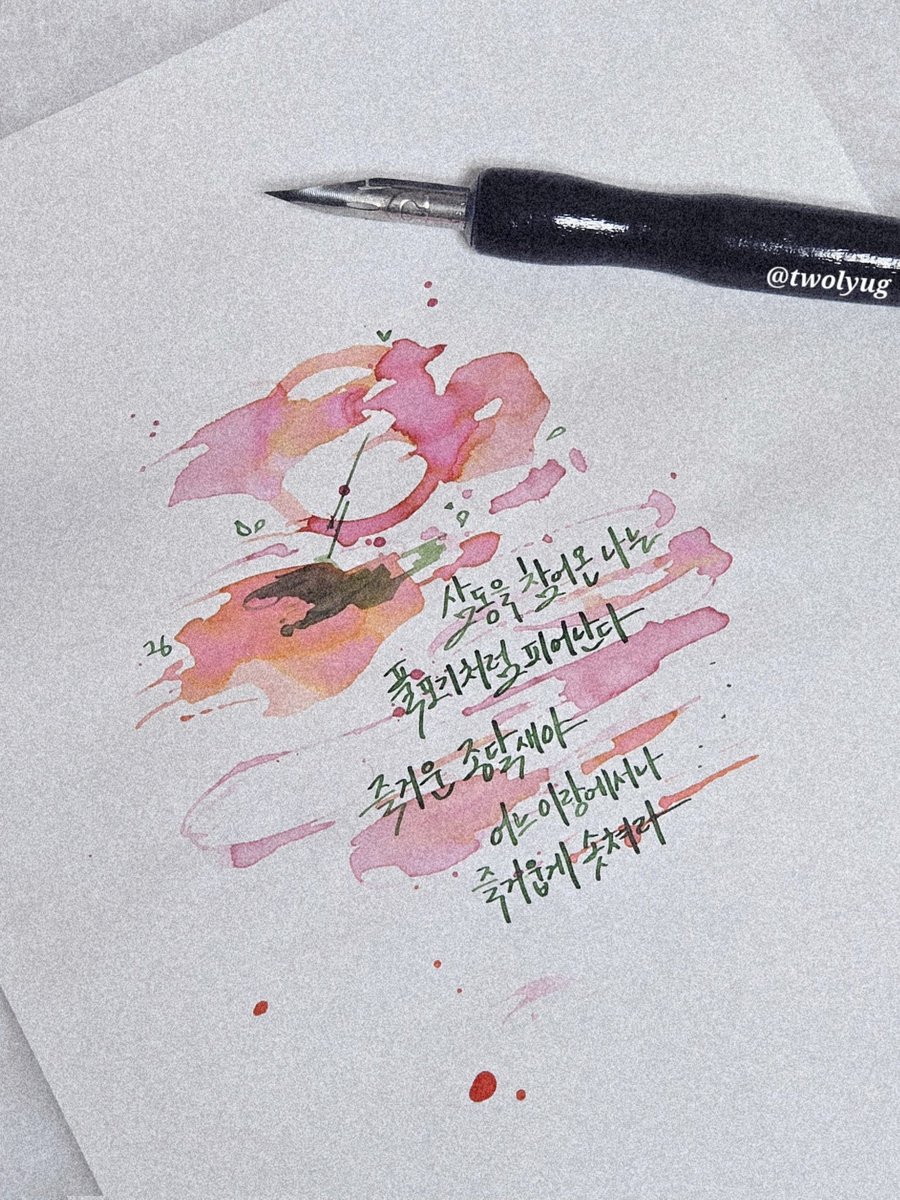 @twolyug
26
삼동을 참어온 나는
풀포기처럼 피어난다
즐거운 종달새야
어느 이랑에서나
즐거웁게 솟쳐라